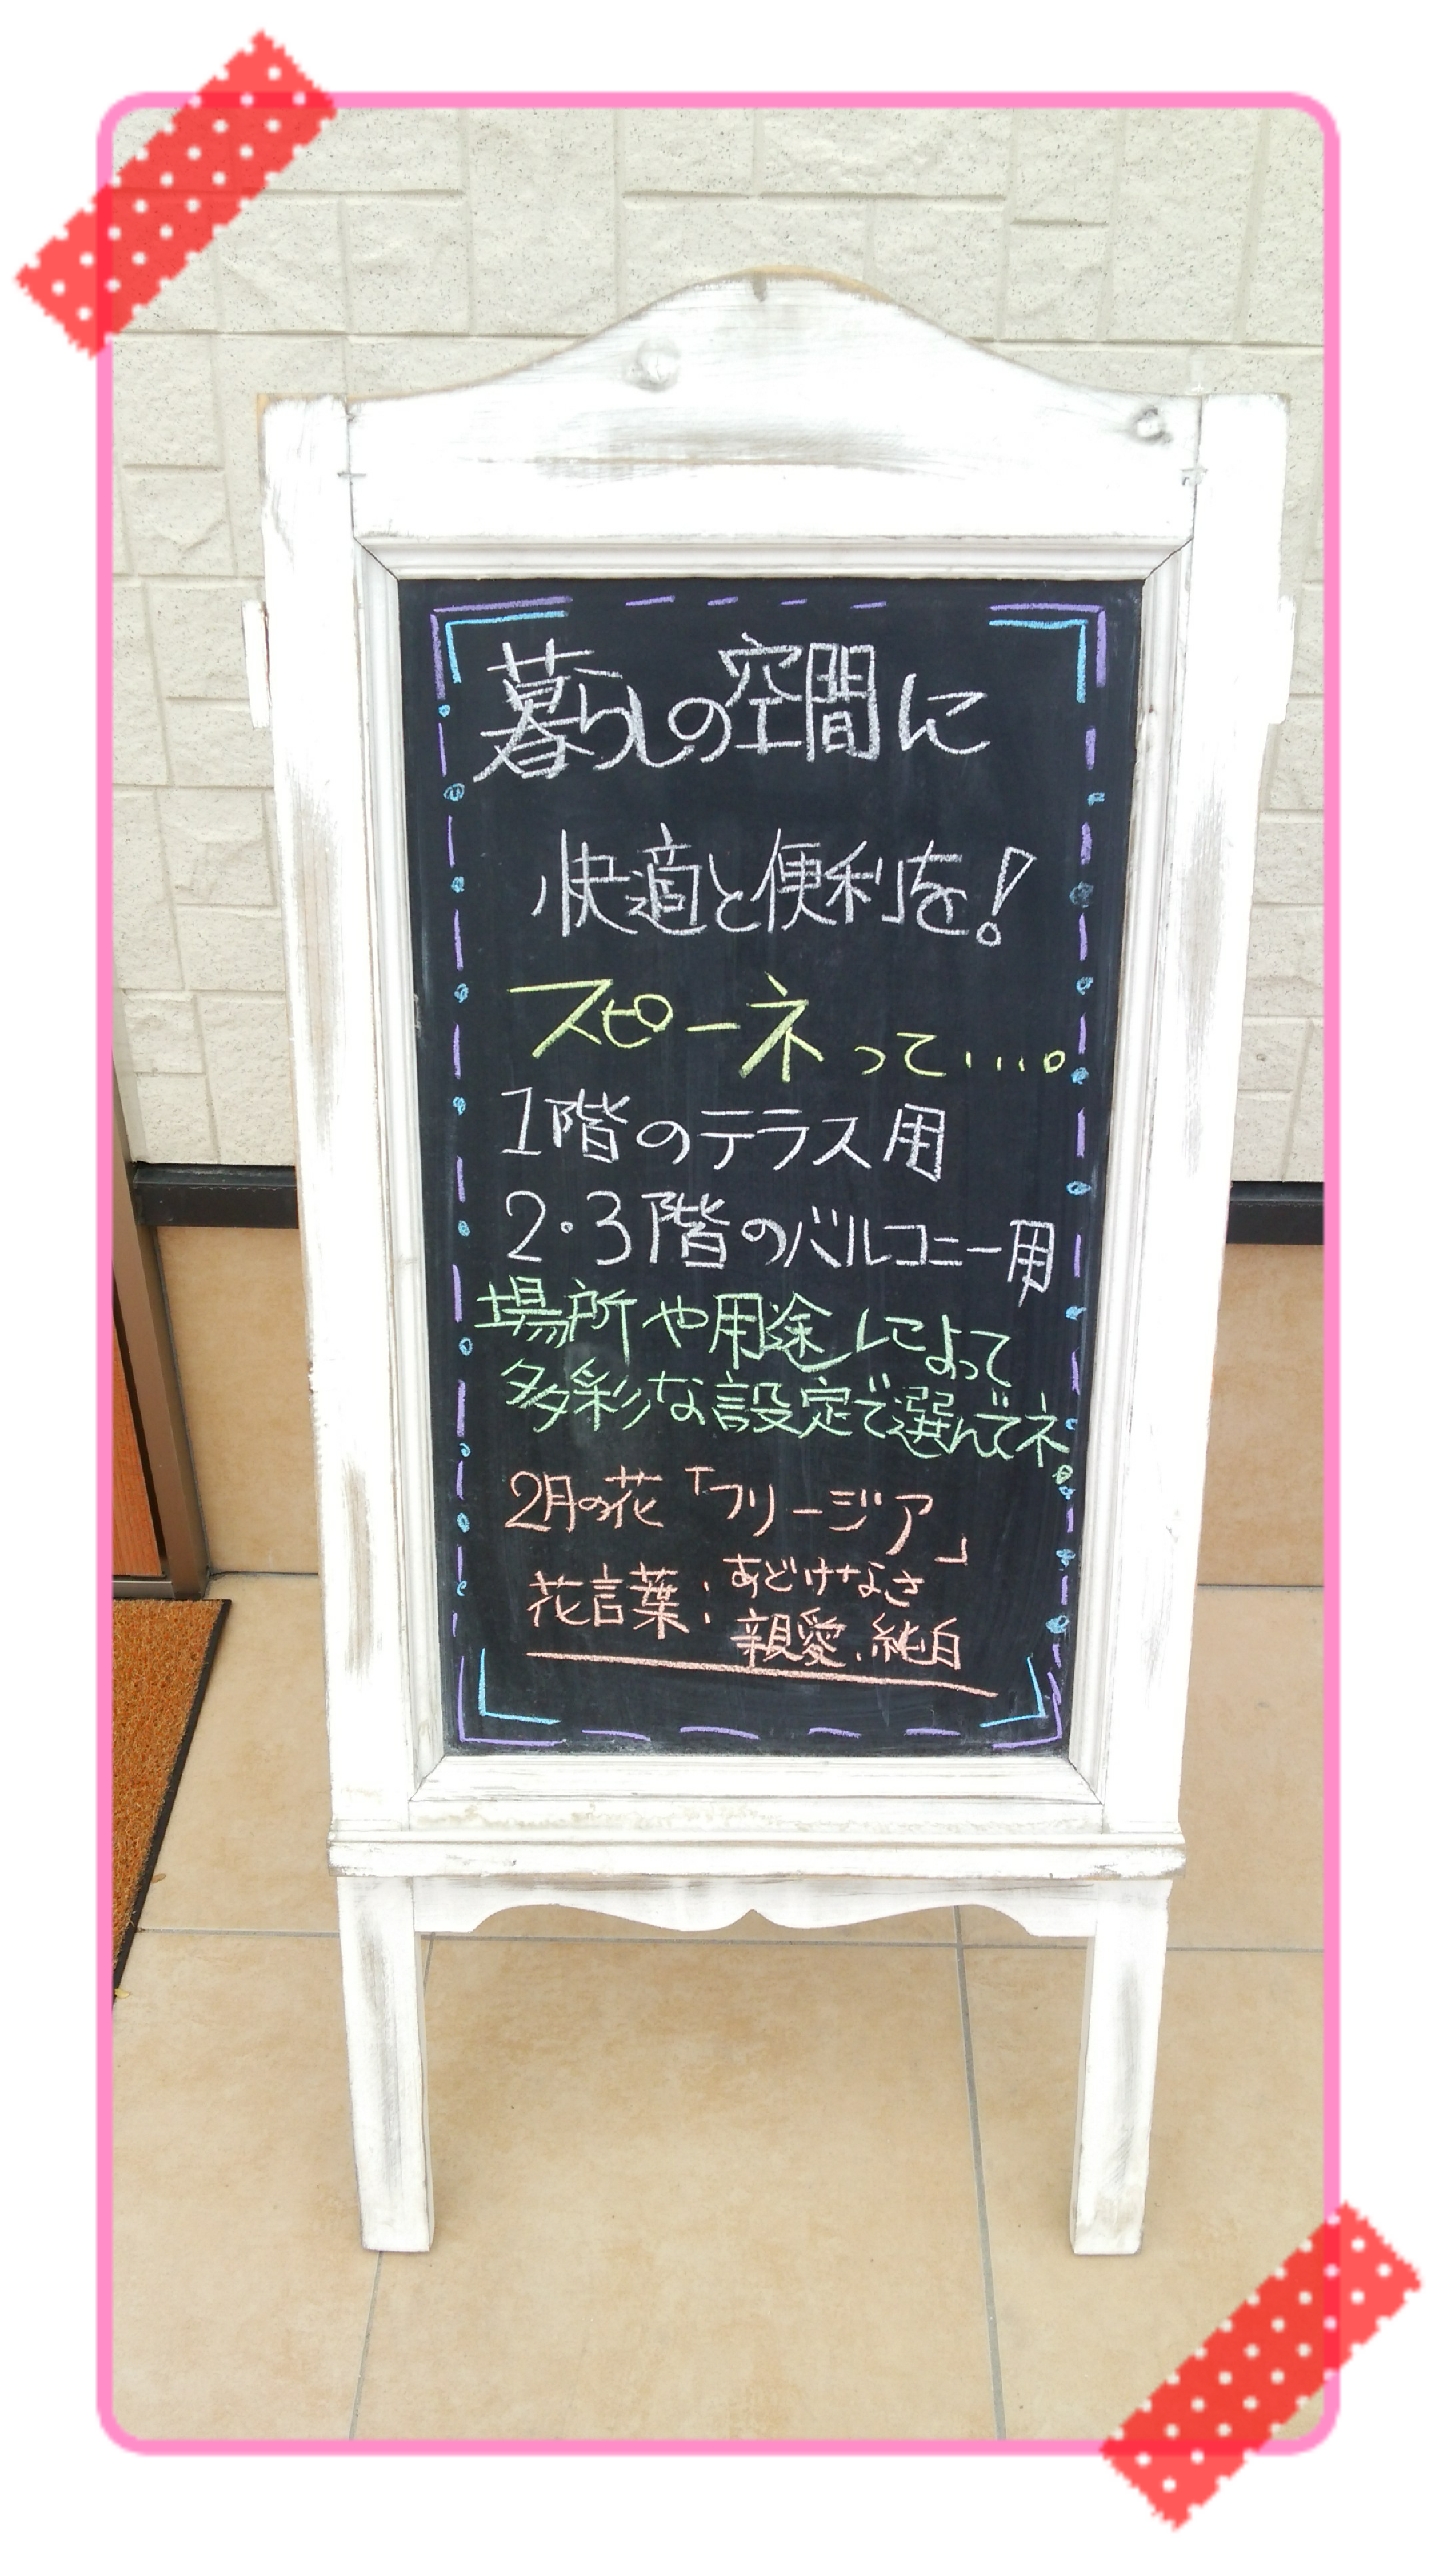 暮らしの空間に
快適と便利を!
スピーネって....。
1階のテラス用
2・3階のバルコニー用
場所や用途によって
多彩な設定で選んでネ。
2月の花「フリージア」
花言葉:あどけなさ
親愛、純白